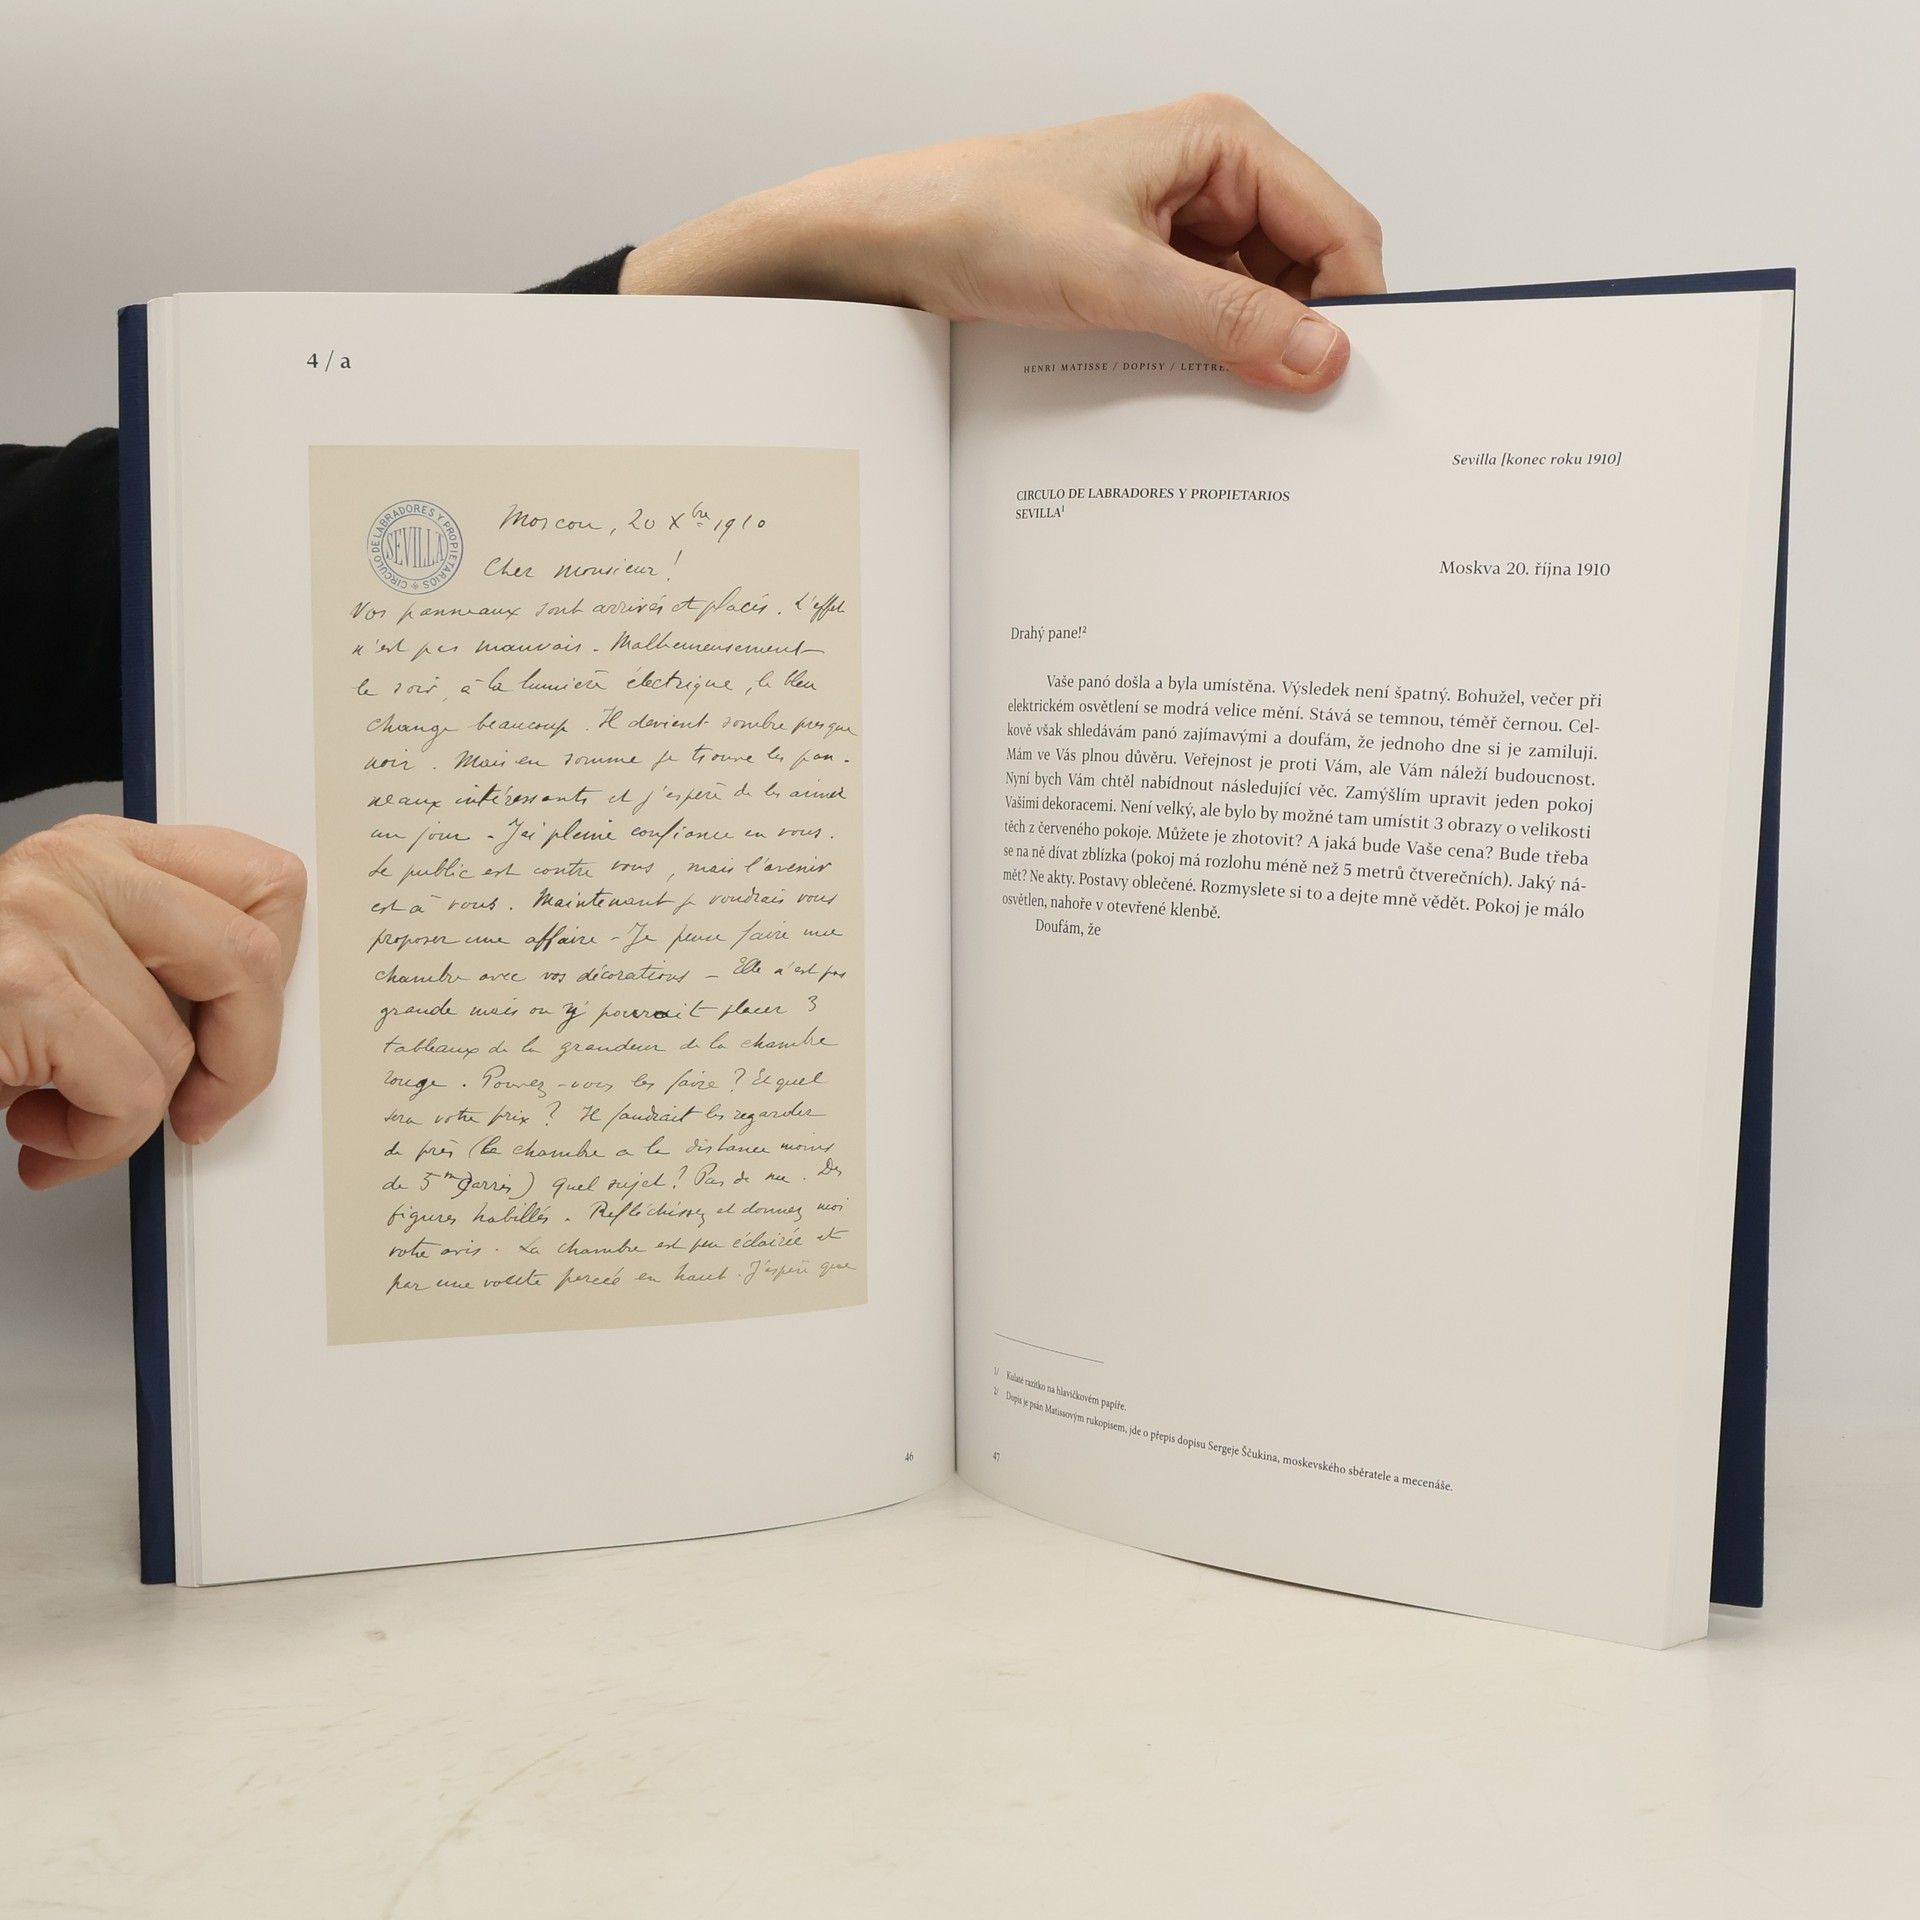 4 / a
CIRCULO DE LABRADORES Y PROPIETARIOS
SEVILLA
Moscou, 20 Xbre 1910
Cher Monsieur!
Vos panneaux sont arrivés et placés. L'effet
n'est pas mauvais. Malheureusement
le soir, à la lumière électrique, le bleu
change beaucoup. Il devient sombre presque
noir. Mais en somme je trouve les pan-
neaux intéressants et j'espère de les aimer
un jour - J'ai pleine confiance en vous.
Le public est contre vous, mais l'avenir
est à vous. Maintenant je voudrais vous
proposer une affaire - Je peux faire une
chambre avec vos décorations - Elle n'est pas
grande mais on y pourrait placer 3
tableaux de la grandeur de la chambre
rouge. Pouvez-vous les faire? Et quel
sera votre prix? Il faudrait les regarder
de près (la chambre a la distance moins
de 5 m carrés) Quel sujet? Pas de nu. Des
figures habillés. Refléchissez et donnez moi
votre avis. La chambre est peu éclairée et
par une voute percée en haut. J'espère que
46
HENRI MATISSE / DOPISY / LETTRE
Sevilla [konec roku 1910]
CIRCULO DE LABRADORES Y PROPIETARIOS
SEVILLA¹
Moskva 20. října 1910
Drahý pane!²
Vaše panó došla a byla umístěna. Výsledek není špatný. Bohužel, večer při
elektrickém osvětlení se modrá velice mění. Stává se temnou, téměř černou. Cel-
kově však shledávám panó zajímavými a doufám, že jednoho dne si je zamiluji.
Mám ve Vás plnou důvěru. Veřejnost je proti Vám, ale Vám náleží budoucnost.
Nyní bych Vám chtěl nabídnout následující věc. Zamýšlím upravit jeden pokoj
Vašimi dekoracemi. Není velký, ale bylo by možné tam umístit 3 obrazy o velikosti
těch z červeného pokoje. Můžete je zhotovit? A jaká bude Vaše cena? Bude třeba
se na ně dívat zblízka (pokoj má rozlohu méně než 5 metrů čtverečních). Jaký ná-
mět? Ne akty. Postavy oblečené. Rozmyslete si to a dejte mně vědět. Pokoj je málo
osvětlen, nahoře v otevřené klenbě.
Doufám, že
1/ Kulaté razítko na hlavičkovém papíře.
2/ Dopis je psán Matissovým rukopisem, jde o přepis dopisu Sergeje Ščukina, moskevského sběratele a mecenáše.
47